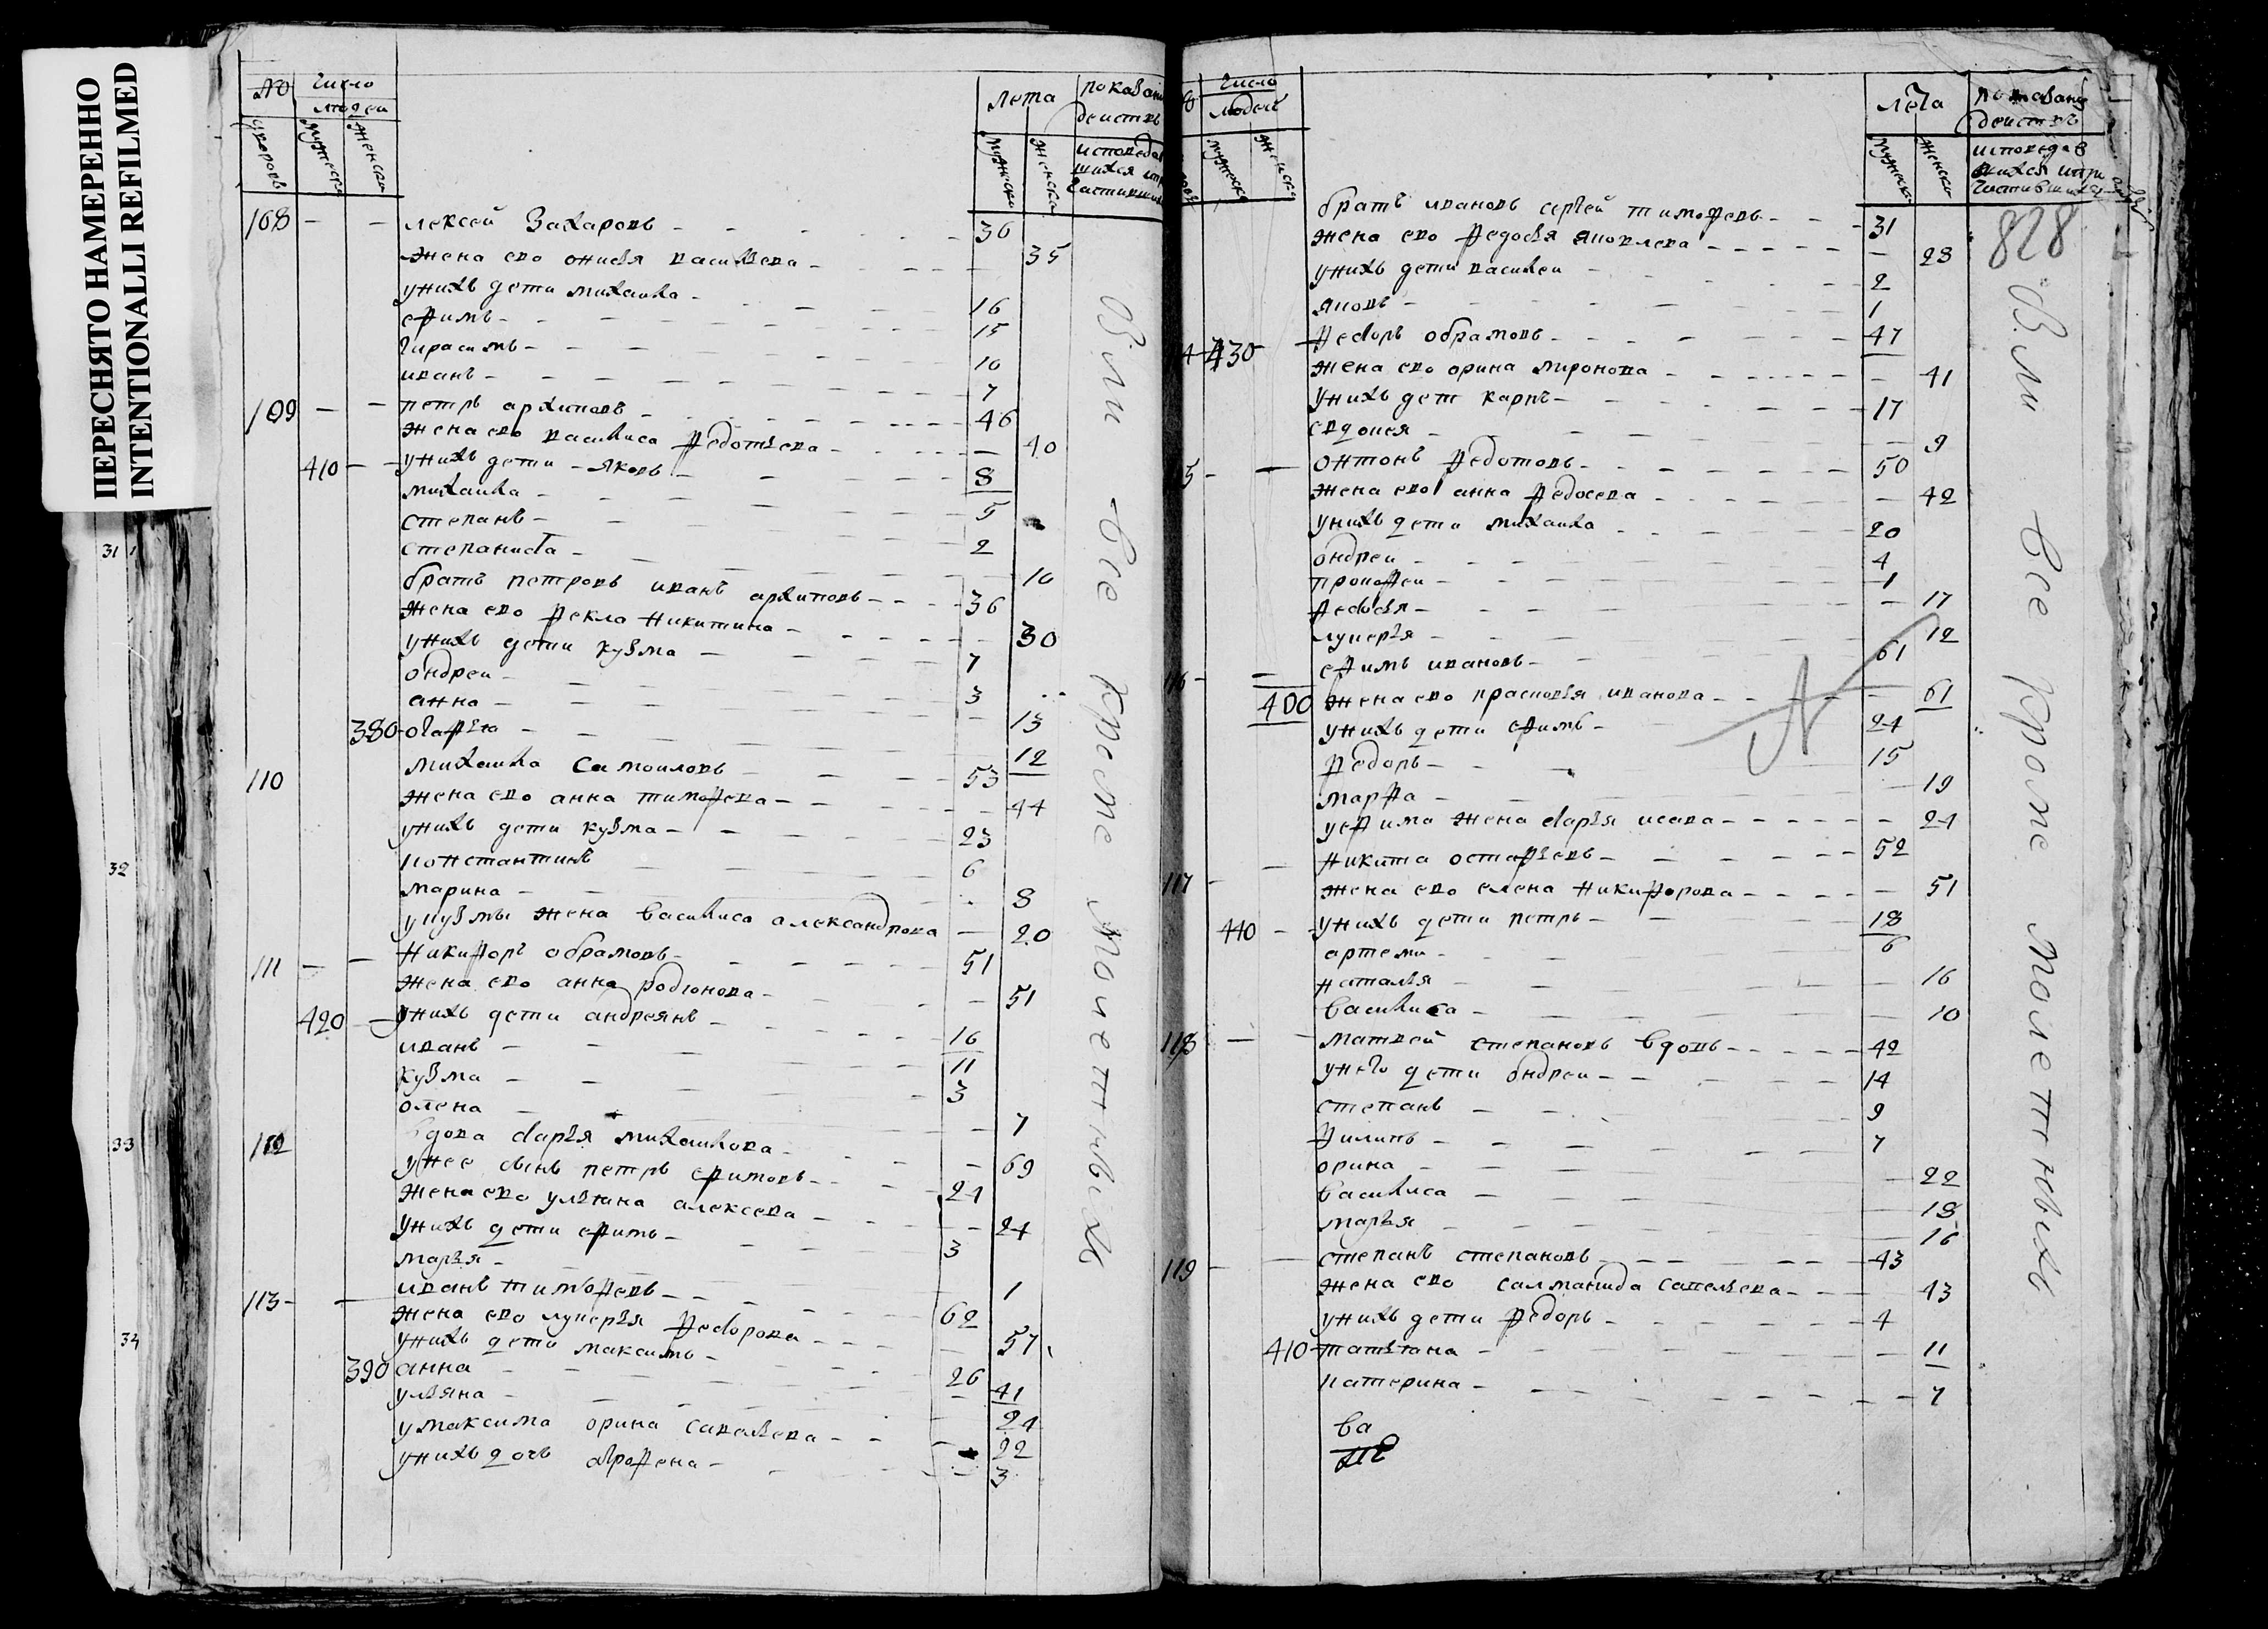 ПЕРЕСНЯТО НАМЕРЕННО
INTENTIONALLI REFILMED
31
32
33
34
№ дворовъ
число людеи
мужеска
женска
лета
мужеска
женска
показани деиств
исповедав
шихся ипри
частивши
108 — — лексеи Захаровъ — 36
жена ево онисья васильева — 35
унихъ дети михаила — 16
ефимъ — 15
гирасимъ — 10
иванъ — 7
109 — — петръ архиповъ — 46
жена ево василиса федотьева — 40
410 — — унихъ дети — яковъ — 8
михаила — 5
степанъ — 2
степанида — 10
братъ петровъ иванъ архиповъ — 36
жена ево фекла никитина — 30
унихъ дети кузма — 7
ондреи — 3
анна — 13
380 огафью — 12
110 михаила самоиловъ — 53
жена ево анна тимофева — 44
унихъ дети кузма — 23
констентинъ 6
марина — 8
укузмы жена василиса александрова — 20
111 — — никифоръ обрамовъ — 51
жена ево анна родионова — 51
420 — унихъ дети андреянъ — 16
иванъ — 11
кузма — 3
олена — 7
112 вдова дарья михаилова — 69
унее сынъ петръ ефимовъ — 21
жена ево ульяна алексева — 24
унихъ дети ефимъ — 3
марья — 1
113 — — иванъ тимофевъ — 62
жена ево лукерья федорова — 57
унихъ дети максимъ — 26
390 анна — 41
ульяна — 21
умаксима орина савельева — 22
унихъ дочь офрофена — 3
Были все кроме молетныхъ
число людеи
мужеска
женска
лета
мужеска
женска
показани деиствъ
исповедав
шихся ипри
частившихся
828
братъ ивановъ сергеи тимофевъ — 31
жена ево федосья яковлева — 28
унихъ дети василеи — 2
яковъ — 1
4 430 — федоръ обрамовъ — 47
жена ево орина миронова — 41
унихъ дети карпъ — 17
евдокея — 9
5 — — онтонъ федотовъ — 50
жена ево анна федосева — 42
унихъ дети михаила — 20
ондреи — 4
прокофеи — 1
федосья — 17
лукерья — 12
116 — — ефимъ ивановъ — 61
400 жена ево прасковья иванова — 61
унихъ дети ефимъ — 24
федоръ — 15
марфа — 19
уефима жена дарья исаева — 21
117 — — никита остафьевъ — 52
жена ево елена никифорова — 51
440 — унихъ дети петръ — 18
артеми — 6
наталья — 16
василиса — 10
118 — — матвеи степановъ вдовъ — 42
унего дети ондреи — 14
степанъ — 9
филипъ — 7
орина — 22
василиса — 18
марья — 16
119 — — степанъ степановъ — 43
жена ево салманида савельева — 43
унихъ дети федоръ — 4
410 татьяна — 11
катерина — 7
Были все кроме молетныхъ